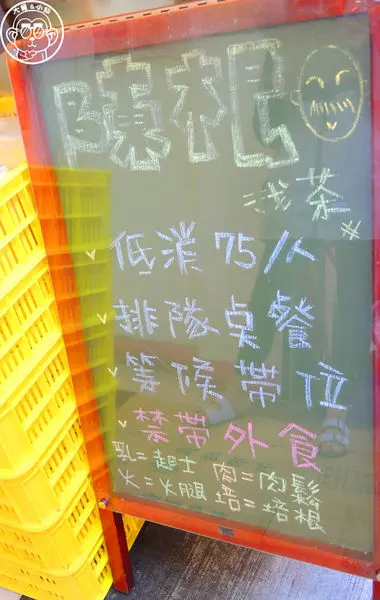 大手&小
隙根
浅茶
低消75/人
排隊桌餐
等候帶位
禁帶外食
乳=起士 肉=肉鬆
火=火腿 培=培根